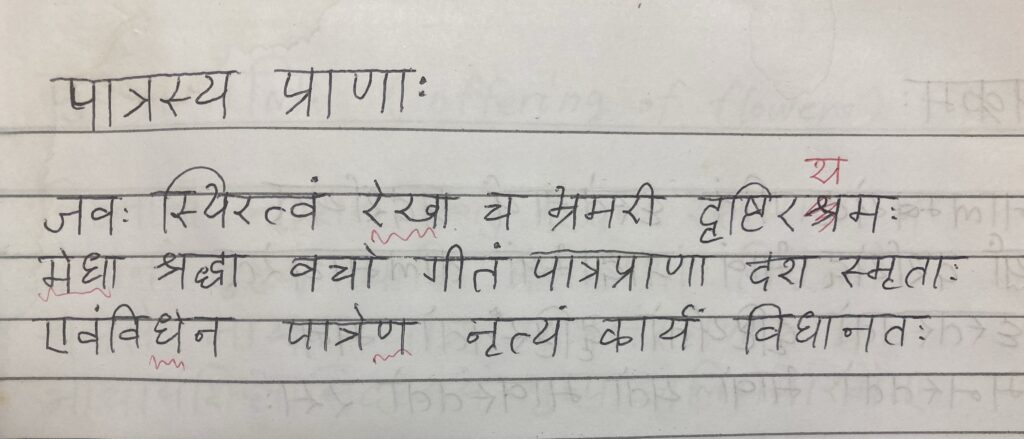 पात्रस्य प्राणाः
जवः स्थिरत्वं रेखा च भ्रमरी दृष्टिरश्रमः
मेधा श्रद्धा वचो गीतं पात्रप्राणा दश स्मृताः
एवंविधेन पात्रेण नृत्यं कार्यं विधानतः